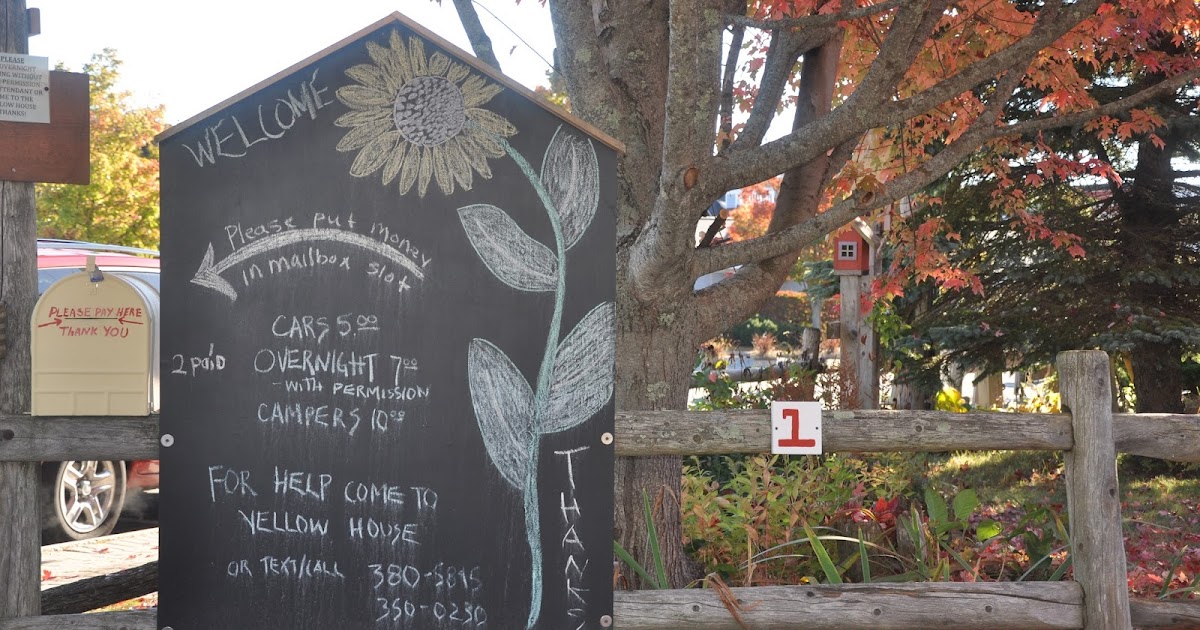 PLEASE
OVERNIGHT
WITHOUT
PERMISSION
ATTENDANT OR
ME TO THE
LOW HOUSE
THANKS!
PLEASE PAY HERE
THANK YOU
WELCOME
Please put money
in mailbox slot
CARS 5.00
2 paid
OVERNIGHT 7.00
-WITH PERMISSION
CAMPERS 10.00
FOR HELP COME TO
YELLOW HOUSE
OR TEXT/CALL 380-5815
350-0230
THANKS
1